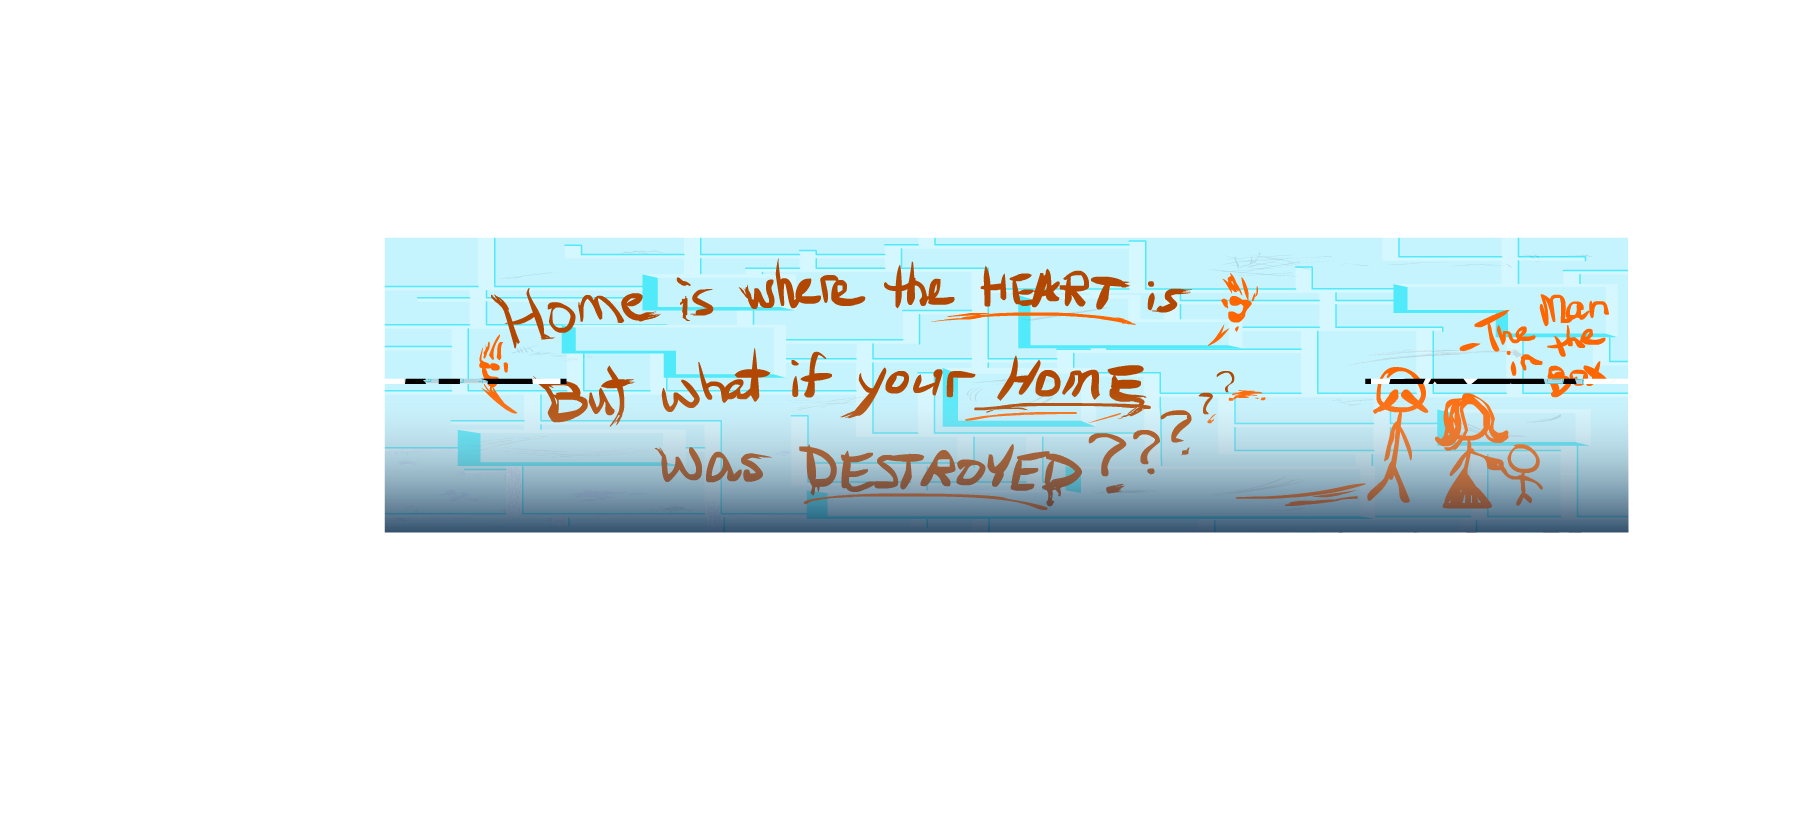 Home is where the HEART is
But what if your HOME
was DESTROYED??????
- The Man
in the
Box